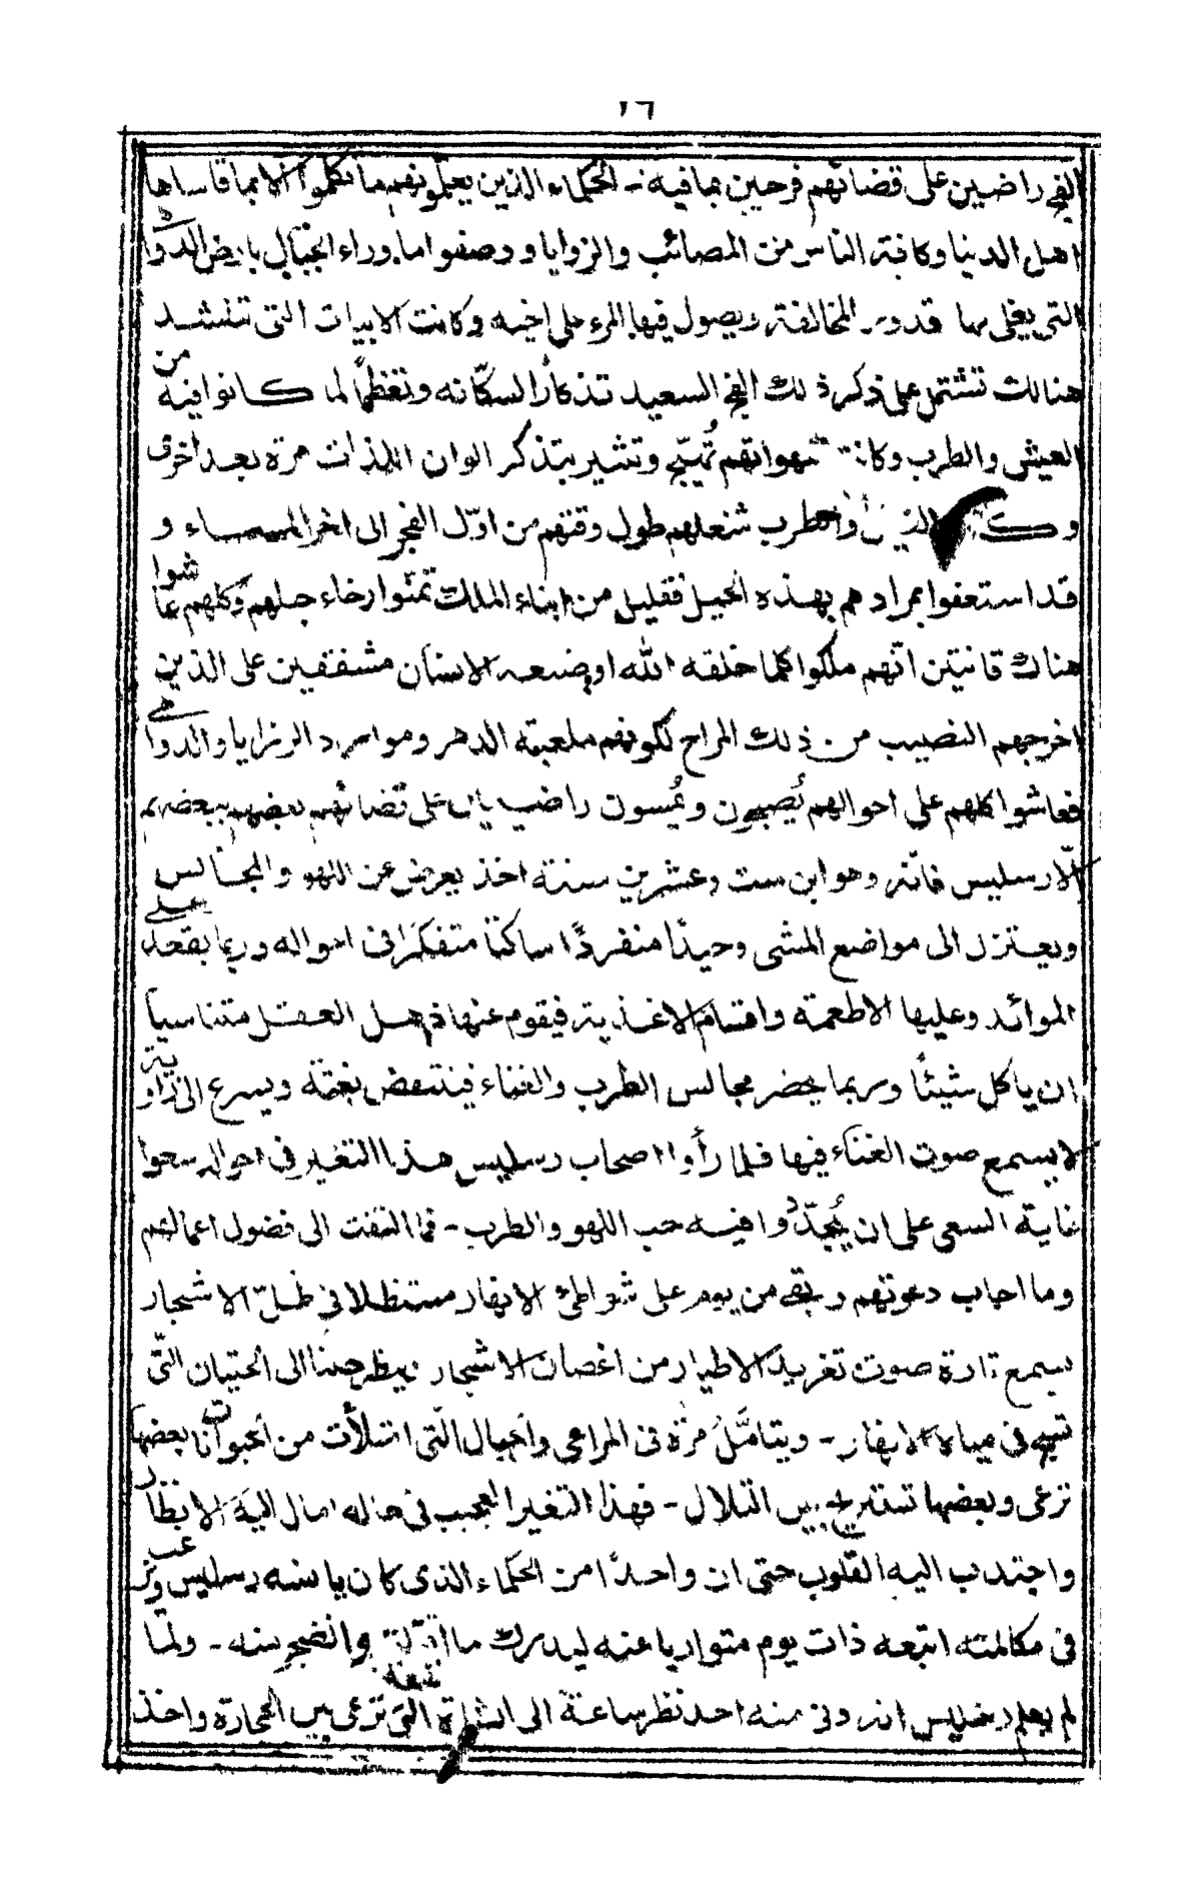 ١٦
الفج راضين على قضائهم فرحين بما فيه - الحكماء الذين يعلمونهم ما تكلموا الا بما قاساها
اهل الدنيا وكافة الناس من المصائب والزوايا ووصفوا ما وراء الجبال بارض الدواهى
التى يغلى بها قدور المخالفة ويصول فيها المرء على اخيه وكانت الابيات التى تنشد
هنالك تشتمل على ذكر ذلك الفج السعيد تذكاراً لسكّانه وتعظيماً لما كانوا فيه من
العيش والطرب وكانت شهواتهم تُهيّج وتشير بتذكر الوان اللذات مرة بعد اخرى
و والطرب شغلهم طول وقتهم من اوّل الفجر الى اخر المساء و
قد استعفوا بمرادهم بهذه الحيل فقليل من ابناء الملك تمنّوا رخاء جبلهم وكلهم عاشوا
هناك قانتين انّهم ملكوا كلما خلقه الله او صنعه الانسان مشفقين على الذين
اخرجهم النصيب من ذلك المراح لكونهم ملعبة الدهر وموارد الرزايا والدواهى
فعاشوا كلهم على احوالهم يُصبحون ويُمسون راضيين على قضائهم بعضهم ببعضهم
الّا رسليس فانّه وهو ابن ست وعشرين سنة اخذ يعرض عن اللهو والمجالس
ويعتزل الى مواضع المشى وحيدًا منفردًا ساكتًا متفكرا فى احواله وربما يقعد على
الموائد وعليها الاطعمة واقسام الاغذية فيقوم عنها ذهل العقل متناسياً
ان ياكل شيئًا وربما يحضر مجالس الطرب والغناء فينتهض بغتة ويسرع الى زاوية
لا يسمع صوت الغناء فيها فلما رأوا اصحاب رسليس هذا التغير فى احواله سعوا
غاية السعى على ان يُجدّدوا فيه حب اللهو والطرب - فما التفت الى فضول اعمالهم
وما اجاب دعوتهم وبقى من يوم على شواطئ الانهار مستظلا فى ظلّ الاشجار
يسمع تارة صوت تغريد الاطيار من اغصان الاشجار وينظر حينا الى الحيتان التّى
تسبح فى مياه الانهار - ويتامّلُ مرّة فى المراعى والجبال الّتى امتلأت من الحيوانات بعضها
ترعى وبعضها تستريح بين التلال - فهذا التغير العجيب فى حاله امال اليه الانظار
واجتذب اليه القلوب حتى ان واحدًا من الحكماء الذى كان يانسه رسليس ويرغب
فى مكالمته اتبعه ذات يوم متواريا عنه ليدرك ما والضجر منه - ولمّا
لم يعلم رسليس ان دونى منه احد نظر ساعة الى الشاة التى ترعى بين الحجارة واخذ